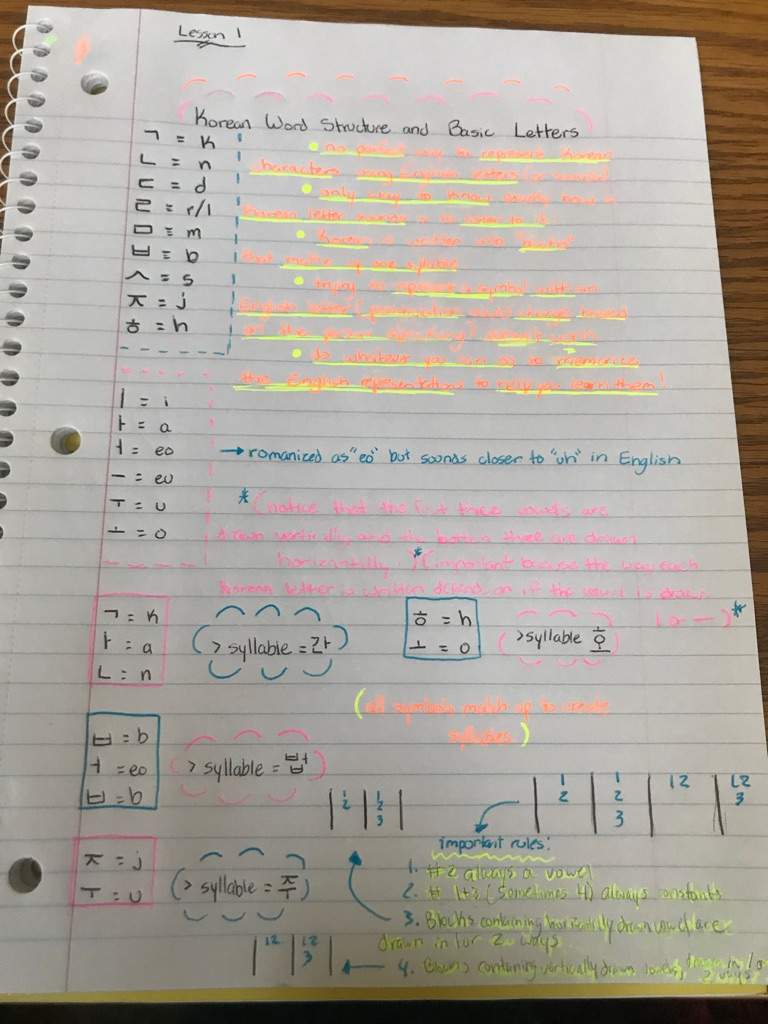 Lesson 1
Korean Word Structure and Basic Letters
ㄱ = k
ㄴ = n
ㄷ = d
ㄹ = r/l
ㅁ = m
ㅂ = b
ㅅ = s
ㅈ = j
ㅎ = h
• no perfect way to represent Korean
characters using English letters
• only way to know exactly how a
Korean letter sounds is to listen to it
• Korean is written into "blocks"
that make up one syllable
• trying to represent a symbol with an
English letter
• do whatever you can do to memorize
the English representations to help you learn them!
ㅣ = i
ㅏ = a
ㅓ = eo
ㅡ = eu
ㅜ = u
ㅗ = o
→ romanized as "eo" but sounds closer to "uh" in English
* (notice that the first three vowels are
drawn vertically and the bottom three are drawn
horizontally. * (important because the way each
Korean letter is written depend on if the vowel is drawn
ㅣ or ㅡ) *
ㄱ = k
ㅏ = a
ㄴ = n
(> syllable = 간)
ㅎ = h
ㅗ = o
(> syllable 호)
(all symbols match up to create
syllables)
ㅂ = b
ㅓ = eo
ㅂ = b
(> syllable = 법)
1
2
1
2
3
1
2
1
2
3
1 2
1 2
3
ㅈ = j
ㅜ = u
(> syllable = 주)
important rules:
1. #2 always a vowel
2. # 1+3 (sometimes 4) always constants
3. Blocks containing horizontally drawn vowel are
drawn in 1 or 2 ways
1 2
1 2
3
4. Blocks containing vertically drawn vowels, drawn in 1 or
2 ways